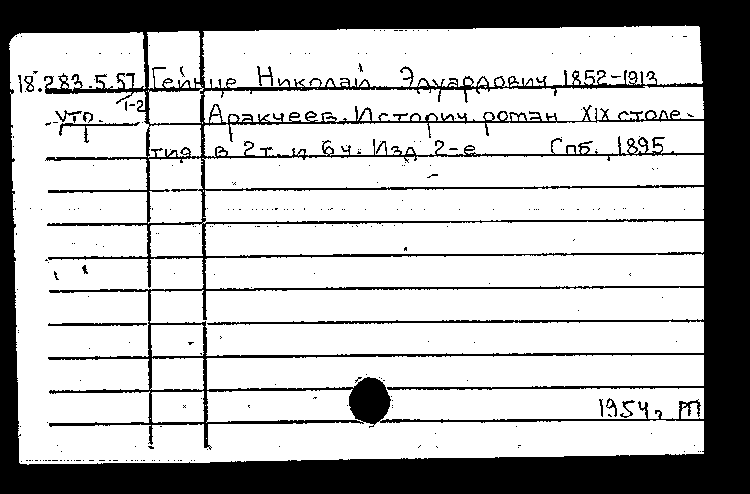 18.283.5.57 Гейнце, Николай Эдуардович, 1852-1913
1-2
утр. Аракчеев. Историч. роман XIX столе-
тия в 2 т. и 6 ч. Изд. 2-е Спб., 1895.
1954 г. РП